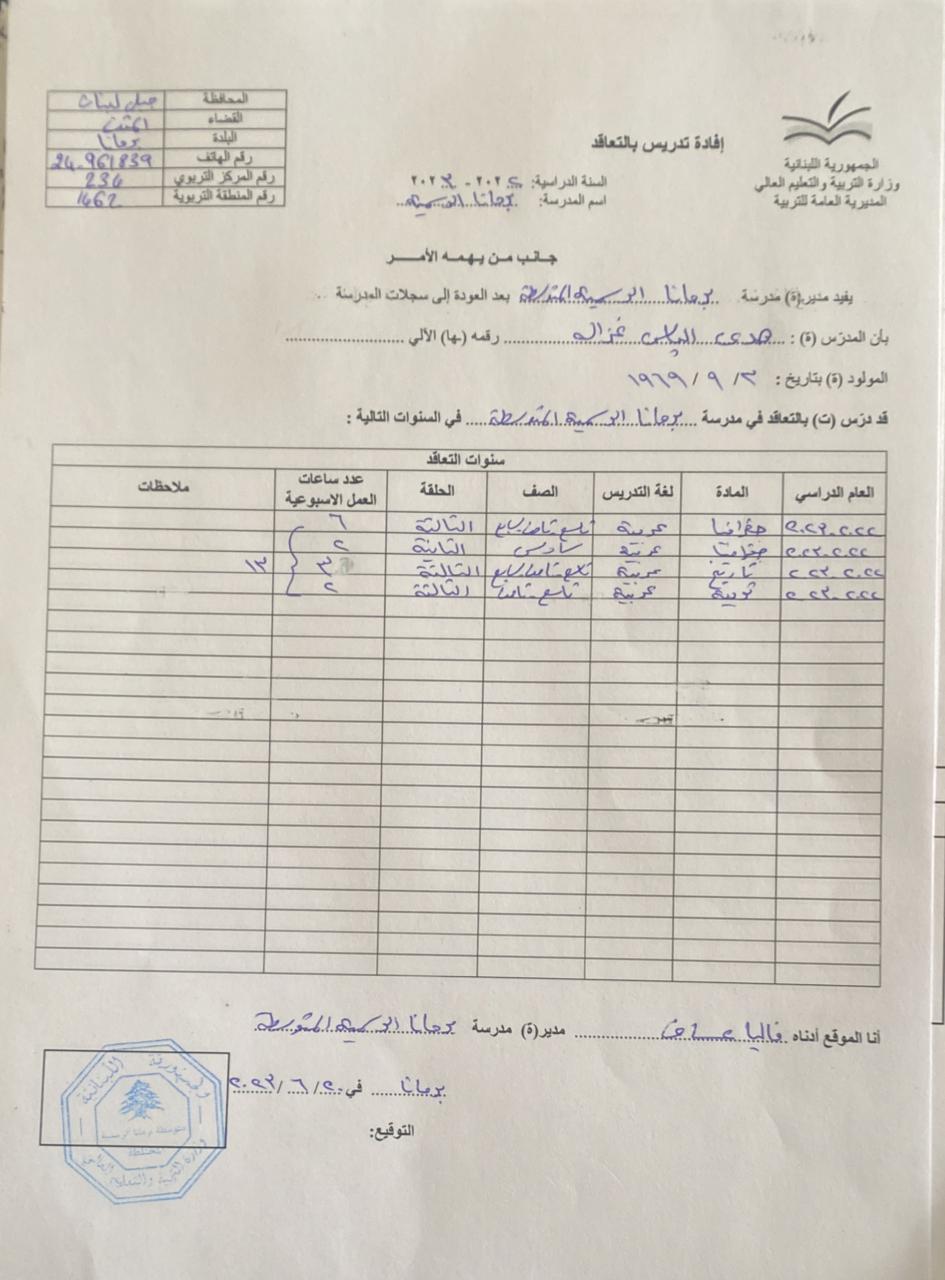 الجمهورية اللبنانية
وزارة التربية والتعليم العالي
المديرية العامة للتربية
إفادة تدريس بالتعاقد
السنة الدراسية: ٢٠٢٢ - ٢٠٢٣
اسم المدرسة: برمانا الرسمية
المحافظة جبل لبنان
القضاء المتن
البلدة برمانا
رقم الهاتف 24-961839
رقم المركز التربوي 234
رقم المنطقة التربوية 1462
جانب من يهمه الأمر
يفيد مدير(ة) مدرسة برمانا الرسمية المتوسطة بعد العودة إلى سجلات المدرسة
بأن المدرّس (ة) : هدى الياس غزال رقمه (ها) الآلي
المولود (ة) بتاريخ : ٣ / ٩ / ١٩٦٩
قد درّس (ت) بالتعاقد في مدرسة برمانا الرسمية المتوسطة في السنوات التالية :
سنوات التعاقد
العام الدراسي المادة لغة التدريس الصف الحلقة عدد ساعات العمل الاسبوعية ملاحظات
٢٠٢٢-٢٠٢٣ جغرافيا عربية تاسع-ثامن-سابع الثالثة ٦
٢٠٢٢-٢٠٢٣ جغرافيا عربية سادس الثانية ٢
٢٠٢٢-٢٠٢٣ تاريخ عربية تاسع-ثامن-سابع الثالثة ٣ ١٣
٢٠٢٢-٢٠٢٣ تربية عربية تاسع-ثامن الثالثة ٢
أنا الموقع أدناه داليا عساف مدير(ة) مدرسة برمانا الرسمية المتوسطة
برمانا في ٢٠ / ٦ / ٢٠٢٣
التوقيع:
الجمهورية اللبنانية
وزارة التربية والتعليم العالي